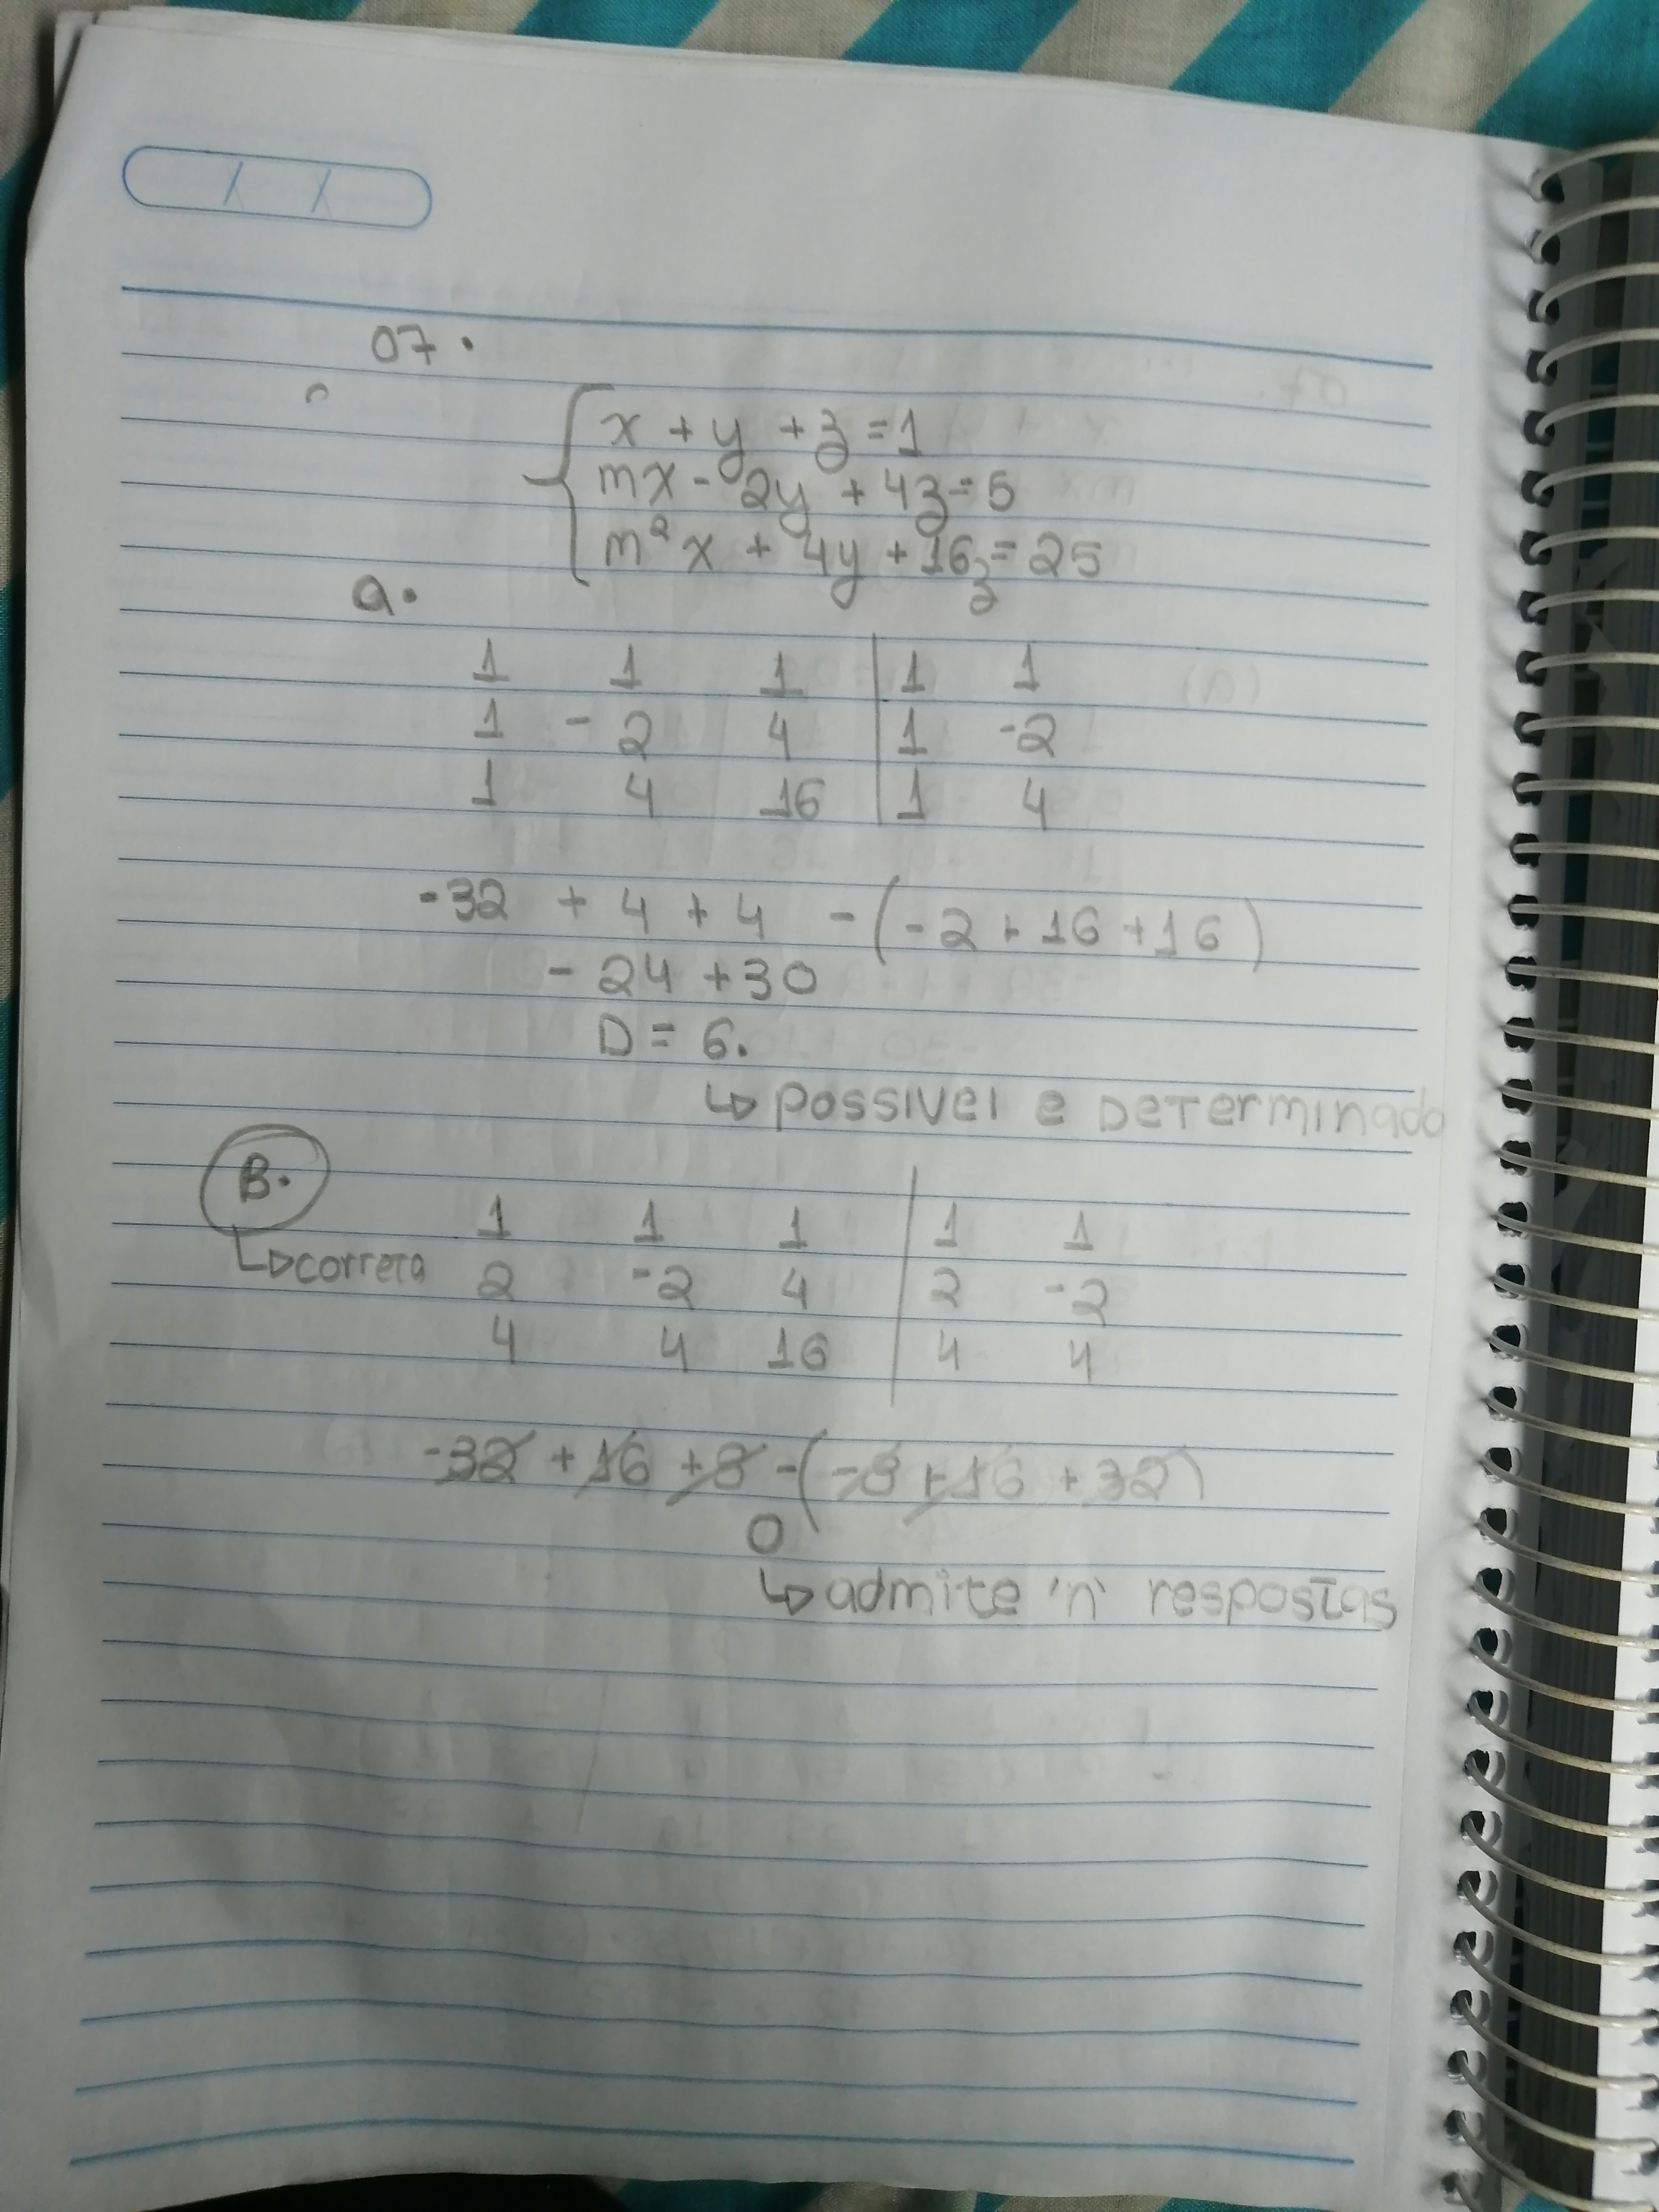 07.
x + y + z = 1
mx - 2y + 4z = 5
m²x + 4y + 16z = 25
a.
1 1 1 | 1 1
1 -2 4 | 1 -2
1 4 16 | 1 4
-32 + 4 + 4 - (-2 + 16 + 16)
- 24 + 30
D = 6.
↳ POSSIVEL e DETERMINADO
B.
1 1 1 | 1 1
↳ correta 2 -2 4 | 2 -2
4 4 16 | 4 4
-32 + 16 + 8 - (-8 + 16 + 32)
0
↳ admite 'n' respostas